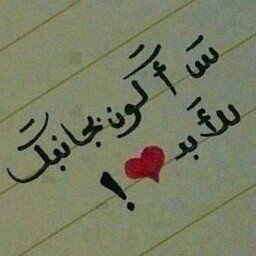 سَأكون بجانبكَ
للأبد ❤!